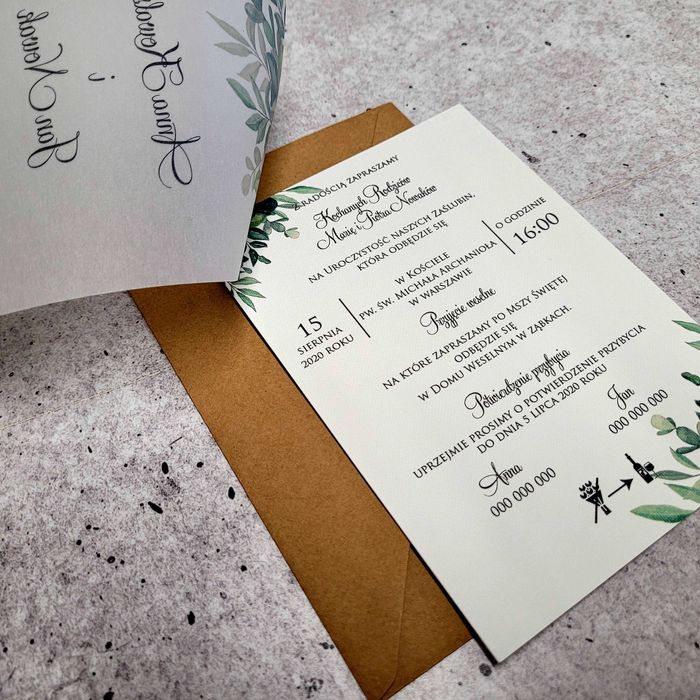 Z RADOŚCIĄ ZAPRASZAMY
Kochanych Rodziców
Marię i Piotra Nowaków
NA UROCZYSTOŚĆ NASZYCH ZAŚLUBIN,
KTÓRA ODBĘDZIE SIĘ
15
SIERPNIA
2020 ROKU
W KOŚCIELE
PW. ŚW. MICHAŁA ARCHANIOŁA
W WARSZAWIE
O GODZINIE
16:00
Przyjęcie weselne
NA KTÓRE ZAPRASZAMY PO MSZY ŚWIĘTEJ
ODBĘDZIE SIĘ
W DOMU WESELNYM W ZĄBKACH.
Potwierdzenie przybycia
UPRZEJMIE PROSIMY O POTWIERDZENIE PRZYBYCIA
DO DNIA 5 LIPCA 2020 ROKU
Anna
000 000 000
Jan
000 000 000
Anna
i
Jan